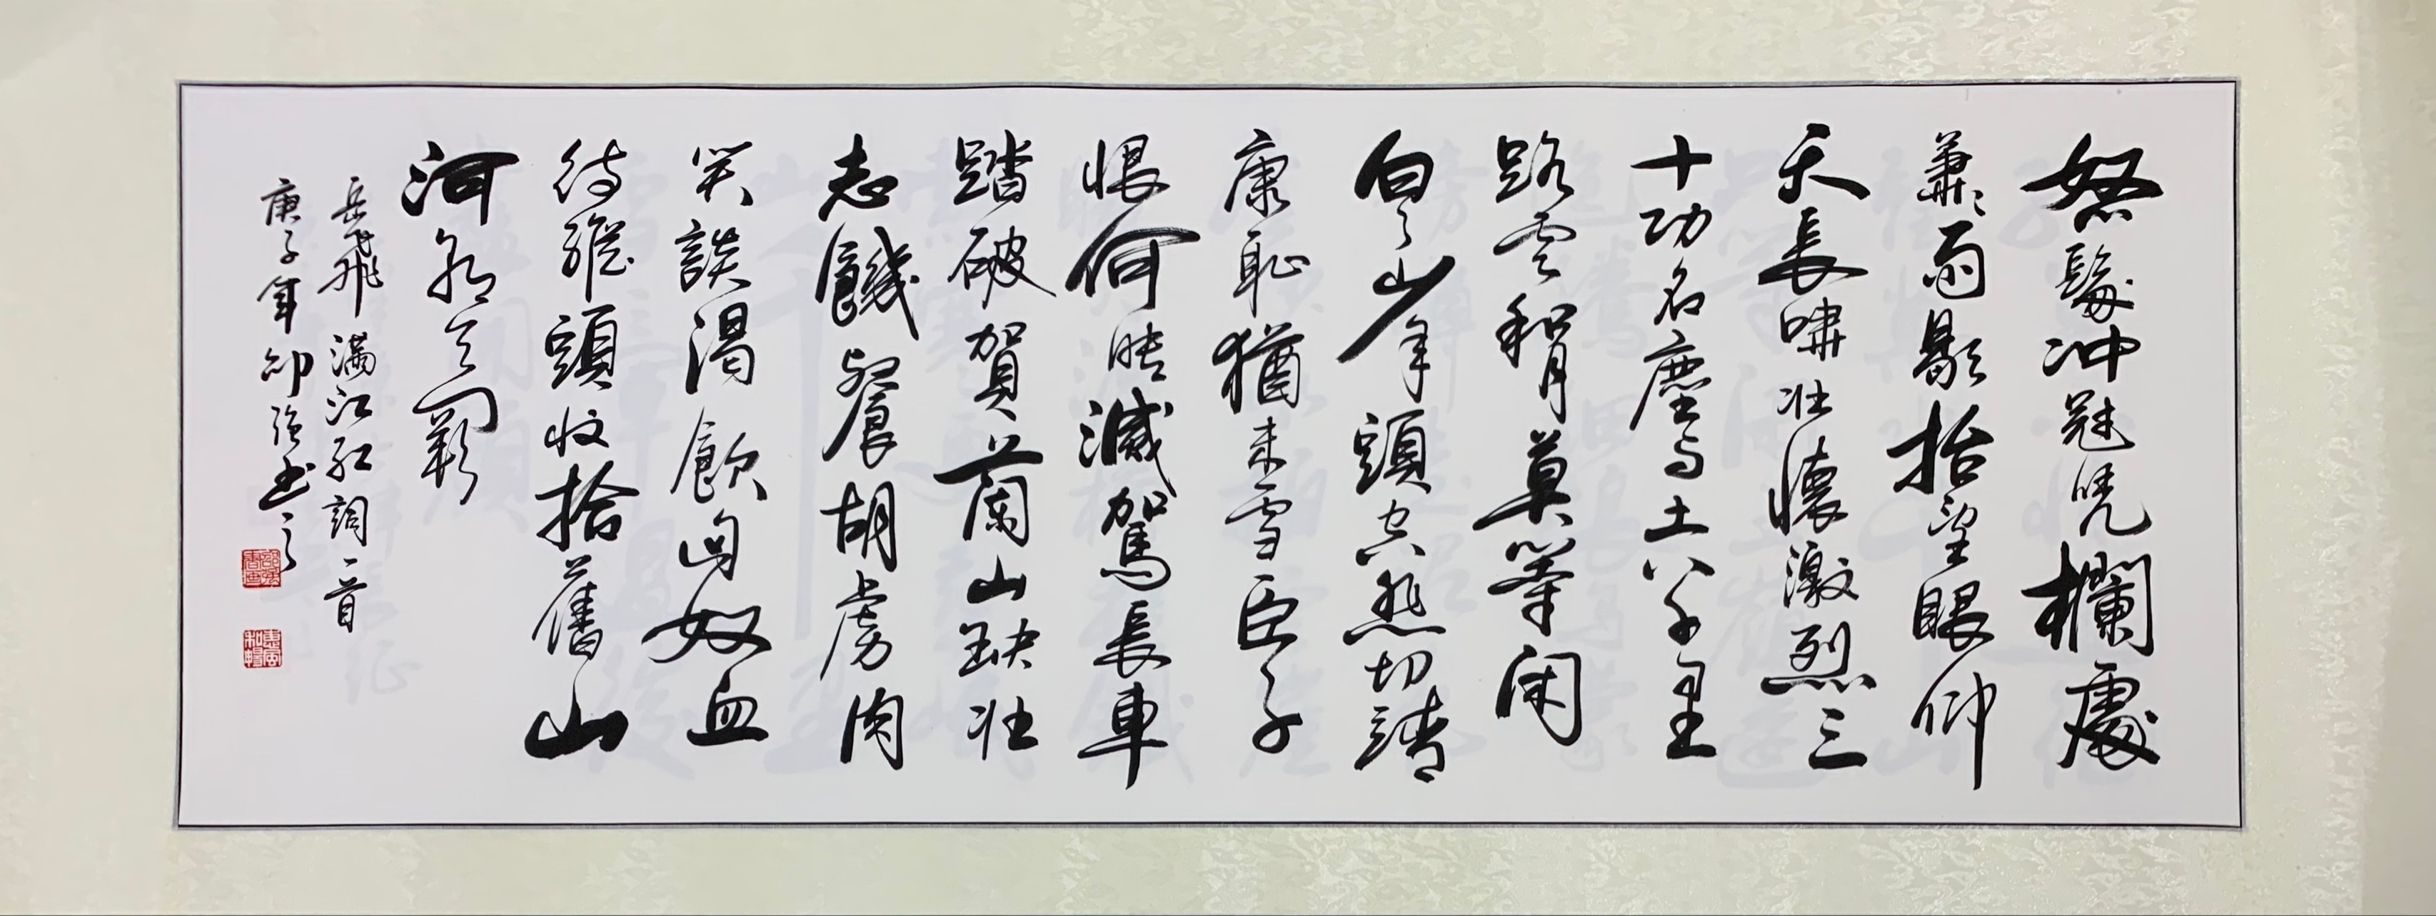 怒髮冲冠凭欄處
蕭々雨歇抬望眼仰
天長嘯壯懷激烈三
十功名塵与土八千里
路雲和月莫等闲
白了少年頭空悲切靖
康恥猶未雪臣子
恨何時滅駕長車
踏破賀蘭山缺壯
志饑餐胡虜肉
笑談渴飲匈奴血
待從頭收拾舊山
河朝天闕
岳飛满江紅詞一首
庚子年邵强书之
惠風和暢